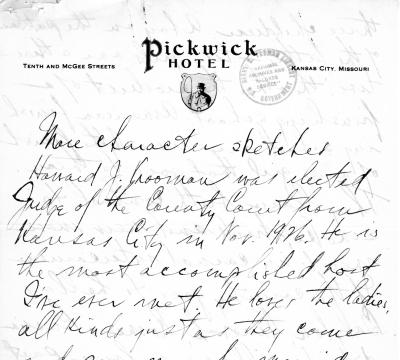 Pickwick
HOTEL
TENTH AND MCGEE STREETS
KANSAS CITY, MISSOURI
More character sketches
Howard J. Vrooman was elected
Judge of the County Court from
Kansas City in Nov. 1926. He is
the most accomplished host
I've ever met. He loves the ladies,
all kinds just as they come